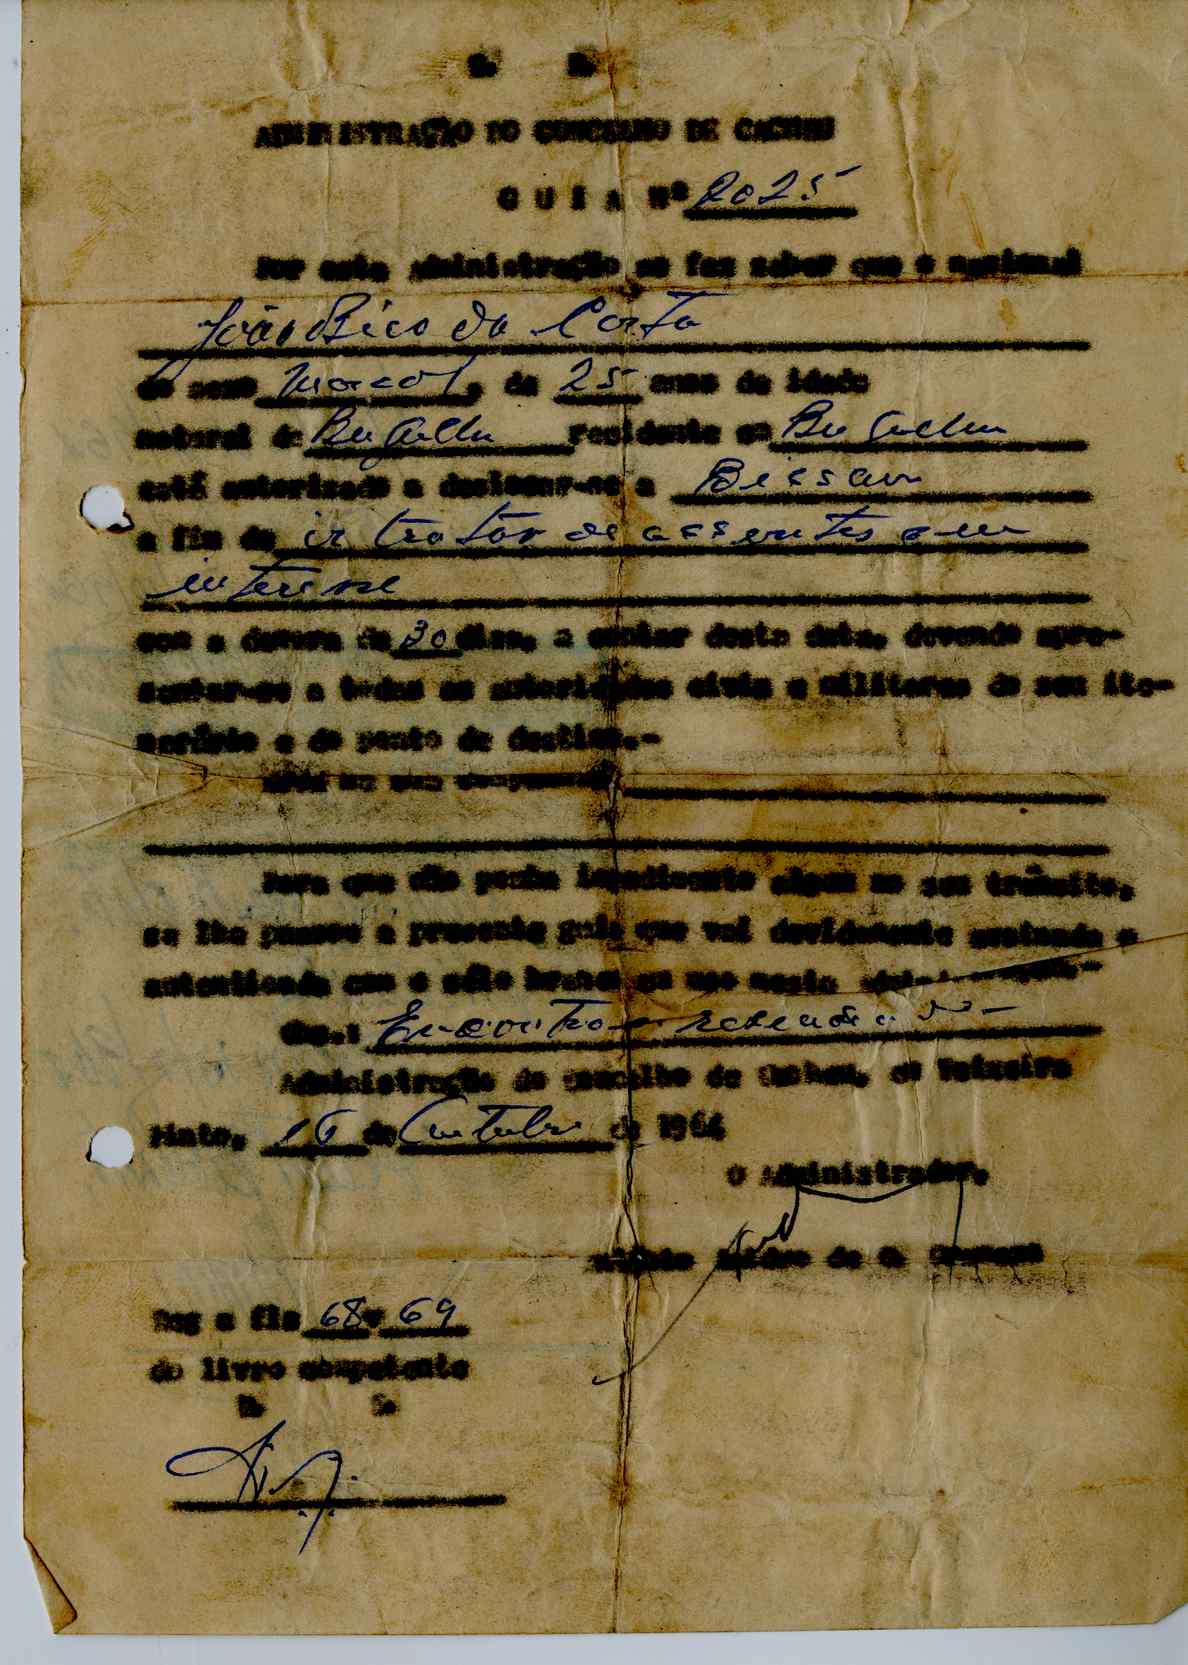 S. R.
ADMINISTRAÇÃO DO CONCELHO DE CACHEU
G U I A Nº 2025
Por esta Administração se faz saber que o nacional
João Bico da Costa
do sexo mascol, de 25 anos de idade
natural de Bugulha residente em Bugulha
está autorizado a deslocar-se a Bissau
a fim de ir tratar de assuntos seu
interesse
com a demora de 30 dias, a contar desta data, devendo apre-
sentar-se a todas as autoridades civis e militares do seu ite-
nerário e do ponto de destino.-
Leva em sua companhia
Para que não ponha impedimento algum ao seu trânsito,
se lhe passou a presente guia que vai devidamente assinada e
autenticada com o sêlo branco em uso nesta administração.-
Obs.:
Administração do Concelho de Cacheu, em Teixeira
Pinto, 16 de Outubro de 1964
O Administrador,
Reg a fls 68 v 69
do livro competente